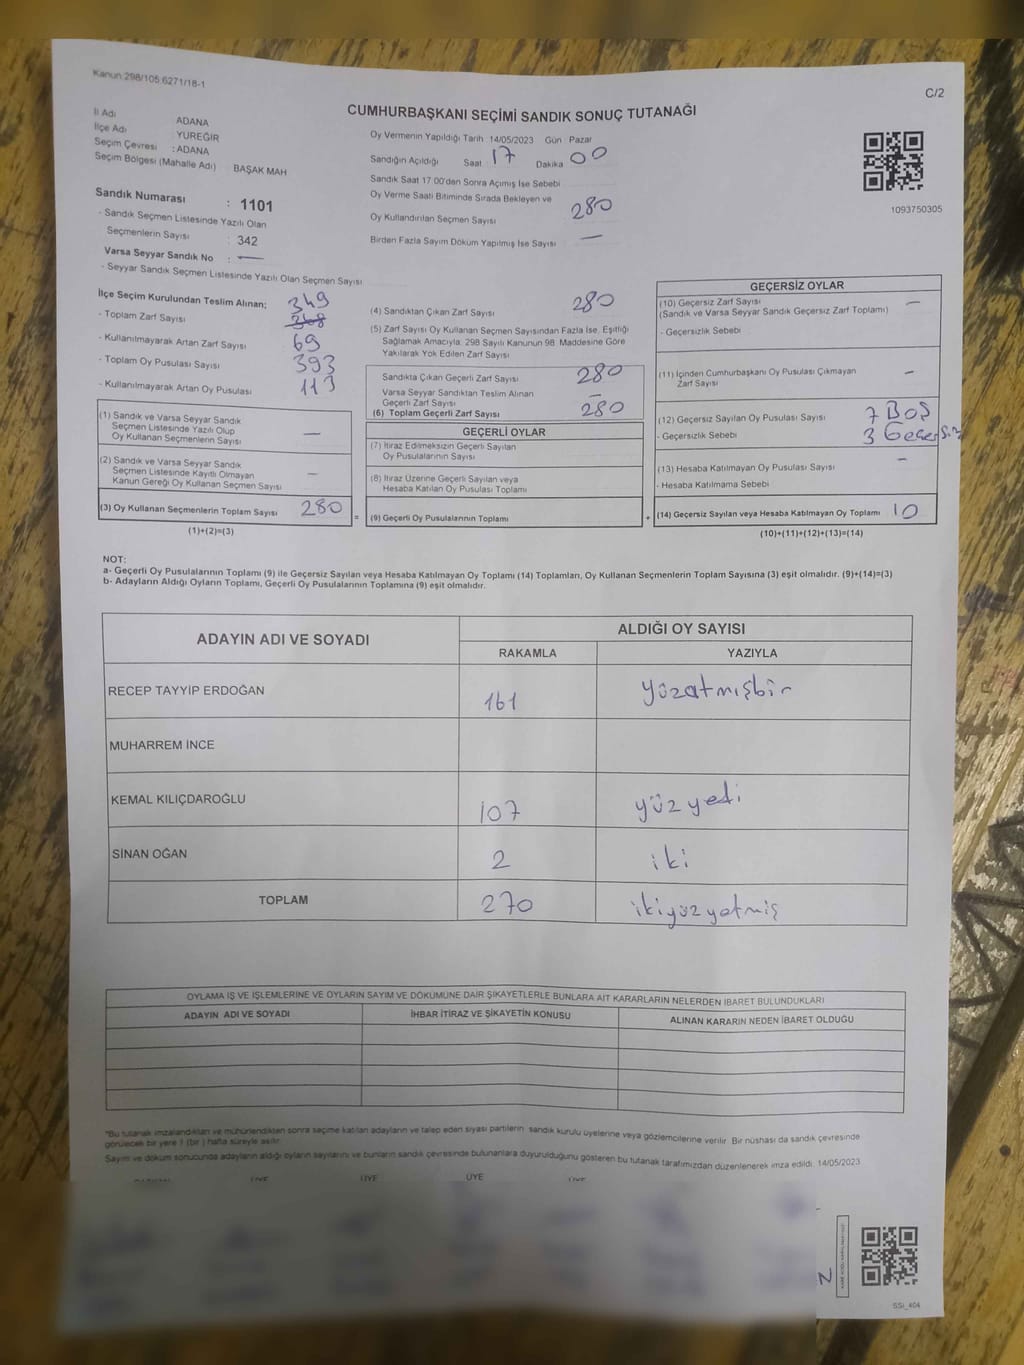 Kanun:298/105 6271/18-1
C/2
CUMHURBAŞKANI SEÇİMİ SANDIK SONUÇ TUTANAĞI
İl Adı ADANA
İlçe Adı YÜREĞİR
Seçim Çevresi : ADANA
Seçim Bölgesi (Mahalle Adı) BAŞAK MAH
Sandık Numarası : 1101
- Sandık Seçmen Listesinde Yazılı Olan
Seçmenlerin Sayısı : 342
Varsa Seyyar Sandık No : —
- Seyyar Sandık Seçmen Listesinde Yazılı Olan Seçmen Sayısı
Oy Vermenin Yapıldığı Tarih 14/05/2023 Gün Pazar
Sandığın Açıldığı Saat 17 Dakika 00
Sandık Saat 17 00'den Sonra Açımış İse Sebebi
Oy Verme Saati Bitiminde Sırada Bekleyen ve
Oy Kullandırılan Seçmen Sayısı 280
Birden Fazla Sayım Döküm Yapılmış İse Sayısı —
1093750305
İlçe Seçim Kurulundan Teslim Alınan; 349
- Toplam Zarf Sayısı
- Kullanılmayarak Artan Zarf Sayısı 69
- Toplam Oy Pusulası Sayısı 393
- Kullanılmayarak Artan Oy Pusulası 113
(1) Sandık ve Varsa Seyyar Sandık
Seçmen Listesinde Yazılı Olup
Oy Kullanan Seçmenlerin Sayısı —
(2) Sandık ve Varsa Seyyar Sandık
Seçmen Listesinde Kayıtlı Olmayan
Kanun Gereği Oy Kullanan Seçmen Sayısı —
(3) Oy Kullanan Seçmenlerin Toplam Sayısı 280 =
(1)+(2)=(3)
(4) Sandıktan Çıkan Zarf Sayısı 280
(5) Zarf Sayısı Oy Kullanan Seçmen Sayısından Fazla İse, Eşitliği
Sağlamak Amacıyla, 298 Sayılı Kanunun 98. Maddesine Göre
Yakılarak Yok Edilen Zarf Sayısı
Sandıkta Çıkan Geçerli Zarf Sayısı 280
Varsa Seyyar Sandıktan Teslim Alınan
Geçerli Zarf Sayısı —
(6) Toplam Geçerli Zarf Sayısı 280
GEÇERLİ OYLAR
(7) İtiraz Edilmeksizin Geçerli Sayılan
Oy Pusulalarının Sayısı
(8) İtiraz Üzerine Geçerli Sayılan veya
Hesaba Katılan Oy Pusulası Toplamı
(9) Geçerli Oy Pusulalarının Toplamı +
GEÇERSİZ OYLAR
(10) Geçersiz Zarf Sayısı —
(Sandık ve Varsa Seyyar Sandık Geçersiz Zarf Toplamı)
- Geçersizlik Sebebi
(11) İçinden Cumhurbaşkanı Oy Pusulası Çıkmayan
Zarf Sayısı —
(12) Geçersiz Sayılan Oy Pusulası Sayısı 7 BOŞ
- Geçersizlik Sebebi 3 Geçersiz
(13) Hesaba Katılmayan Oy Pusulası Sayısı —
- Hesaba Katılmama Sebebi
(14) Geçersiz Sayılan veya Hesaba Katılmayan Oy Toplamı 10
(10)+(11)+(12)+(13)=(14)
NOT:
a- Geçerli Oy Pusulalarının Toplamı (9) ile Geçersiz Sayılan veya Hesaba Katılmayan Oy Toplamı (14) Toplamları, Oy Kullanan Seçmenlerin Toplam Sayısına (3) eşit olmalıdır. (9)+(14)=(3)
b- Adayların Aldığı Oyların Toplamı, Geçerli Oy Pusulalarının Toplamına (9) eşit olmalıdır.
ADAYIN ADI VE SOYADI ALDIĞI OY SAYISI
RAKAMLA YAZIYLA
RECEP TAYYİP ERDOĞAN 161 yüzatmışbir
MUHARREM İNCE
KEMAL KILIÇDAROĞLU 107 yüz yedi
SİNAN OĞAN 2 iki
TOPLAM 270 ikiyüzyetmiş
OYLAMA İŞ VE İŞLEMLERİNE VE OYLARIN SAYIM VE DÖKÜMÜNE DAİR ŞİKAYETLERLE BUNLARA AİT KARARLARIN NELERDEN İBARET BULUNDUKLARI
ADAYIN ADI VE SOYADI İHBAR İTİRAZ VE ŞİKAYETİN KONUSU ALINAN KARARIN NEDEN İBARET OLDUĞU
"Bu tutanak imzalandıktan ve mühürlendikten sonra seçime katılan adayların ve talep eden siyasi partilerin sandık kurulu üyelerine veya gözlemcilerine verilir. Bir nüshası da sandık çevresinde
görülecek bir yere 1 (bir ) hafta süreyle asılır.
Sayım ve döküm sonucunda adayların aldığı oyların sayılarını ve bunların sandık çevresinde bulunanlara duyurulduğunu gösteren bu tutanak tarafımızdan düzenlenerek imza edildi. 14/05/2023
ÜYE ÜYE ÜYE ÜYE
SSI_404